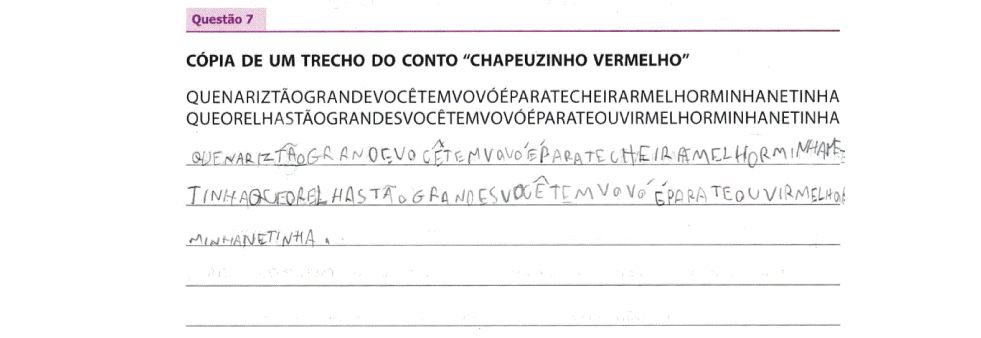 Questão 7
CÓPIA DE UM TRECHO DO CONTO “CHAPEUZINHO VERMELHO”
QUENARIZTÃOGRANDEVOCÊTEMVOVÓÉPARATECHEIRARMELHORMINHANETINHA
QUEORELHASTÃOGRANDESVOCÊTEMVOVÓÉPARATEOUVIRMELHORMINHANETINHA
QUENARIZTÃOGRANDEVOCÊTEMVOVÓÉPARATECHEIRAMELHORMINHANE-
TINHAQUEORELHASTÃOGRANDESVOCÊTEMVOVÓÉPARATEOUVIRMELHOR
MINHANETINHA.